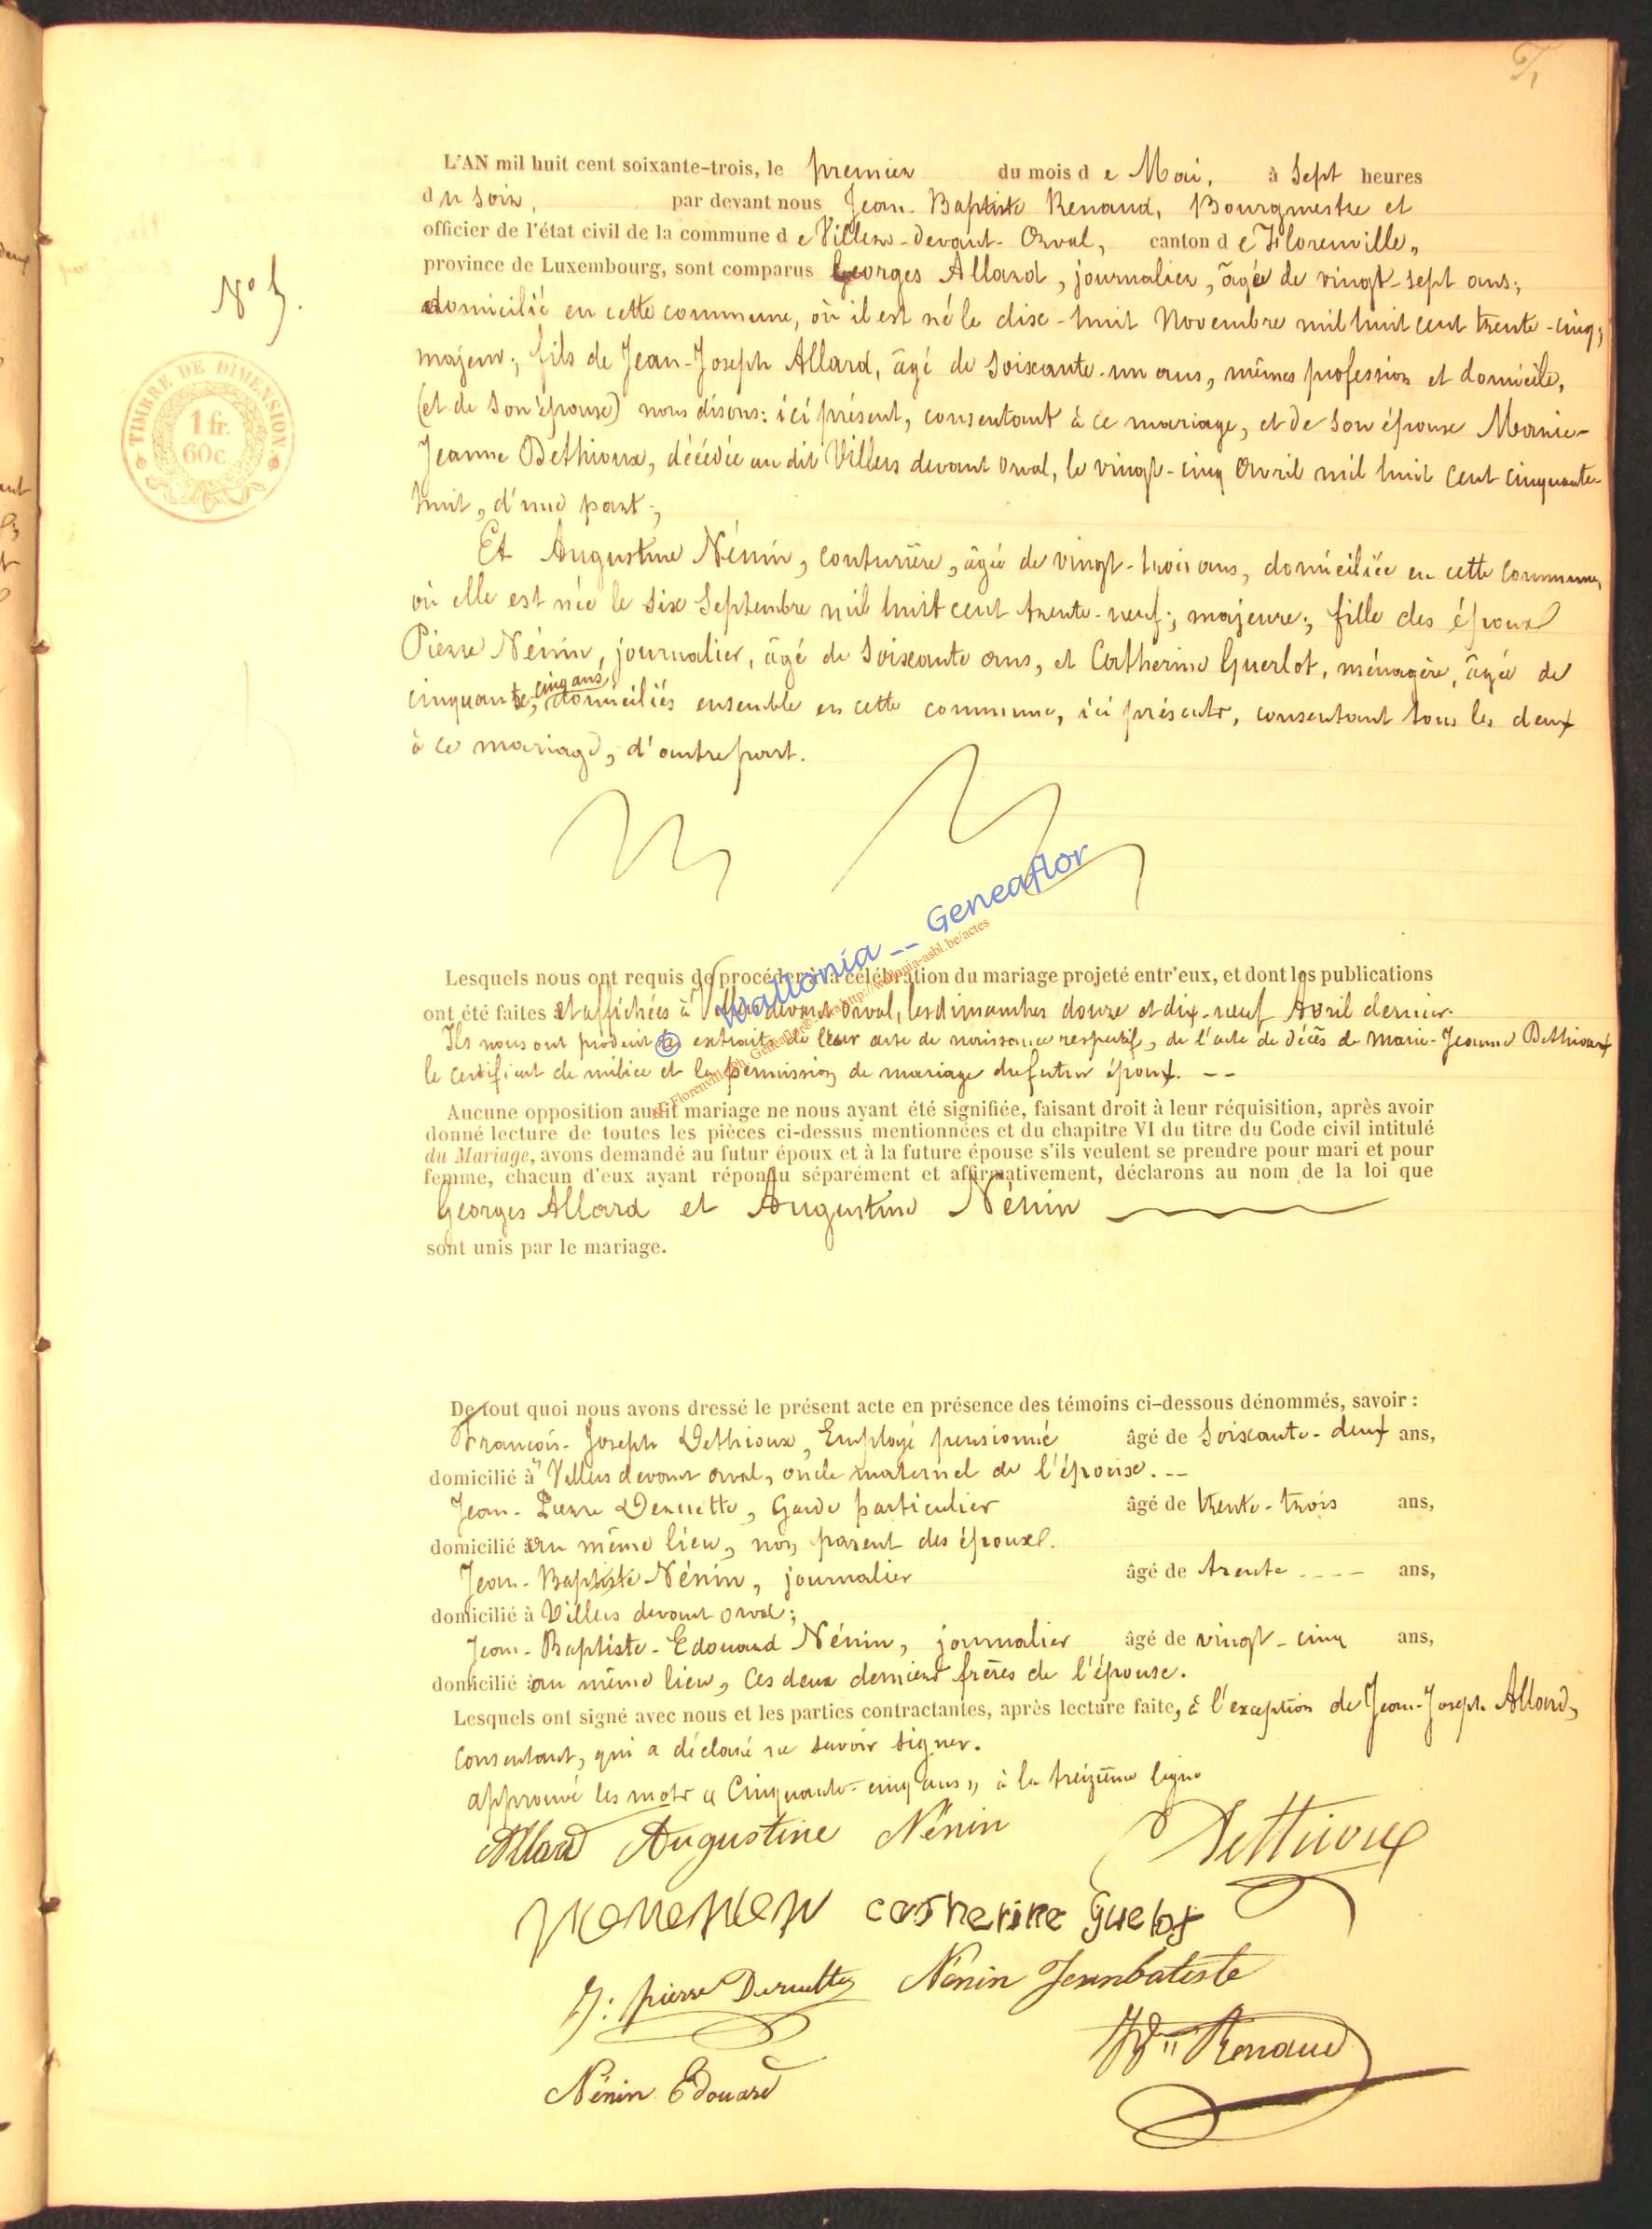 L'AN mil huit cent soixante-trois, le premier du mois de Mai, à sept heures
du soir, par devant nous Jean-Baptiste Renaud, Bourgmestre et
officier de l'état civil de la commune de Villers-devant-Orval, canton de Florenville,
province de Luxembourg, sont comparus Georges Allard, journalier, âgé de vingt-sept ans;
domicilié en cette commune, où il est né le dix-huit Novembre mil huit cent trente-cinq;
N° 5.
majeur; fils de Jean-Joseph Allard, âgé de soixante-un ans, mêmes profession et domicile,
TIMBRE DE DIMENSION
1 fr.
60c
(et de son épouse) nous disons: ici présent, consentant à ce mariage, et de son épouse Marie-
Jeanne Dethioux, décédée au dit Villers devant orval, le vingt-cinq avril mil huit cent cinquante-
huit, d'une part;
Et Augustine Nénin, couturière, âgée de vingt-trois ans, domiciliée en cette commune,
où elle est née le six Septembre mil huit cent trente-neuf; majeure; fille des époux
Pierre Nénin, journalier, âgé de soixante ans, et Catherine Guerlot, ménagère, âgée de
cinquante-cinq ans, domiciliés ensemble en cette commune, ici présents, consentant tous les deux
à ce mariage, d'autre part.
Lesquels nous ont requis de procéder à la célébration du mariage projeté entr'eux, et dont les publications
ont été faites et affichées à Villers devant orval, les dimanches douze et dix-neuf Avril dernier.
Ils nous ont produit les extraits de leur acte de naissance respectif, de l'acte de décès de Marie-Jeanne Dethioux
le certificat de milice et la permission de mariage du futur époux. --
© Wallonia -- Geneaflor
Aucune opposition audit mariage ne nous ayant été signifiée, faisant droit à leur réquisition, après avoir
donné lecture de toutes les pièces ci-dessus mentionnées et du chapitre VI du titre du Code civil intitulé
du Mariage, avons demandé au futur époux et à la future épouse s'ils veulent se prendre pour mari et pour
femme, chacun d'eux ayant répondu séparément et affirmativement, déclarons au nom de la loi que
Georges Allard et Augustine Nénin
sont unis par le mariage.
De tout quoi nous avons dressé le présent acte en présence des témoins ci-dessous dénommés, savoir :
François-Joseph Dethioux, Employé pensionné âgé de soixante-deux ans,
domicilié à Villers devant orval, oncle maternel de l'épouse. --
Jean-Pierre Deruette, Garde particulier âgé de trente-trois ans,
domicilié au même lieu, non parent des époux.
Jean-Baptiste Nénin, journalier âgé de trente ---- ans,
domicilié à Villers devant orval;
Jean-Baptiste-Edouard Nénin, journalier âgé de vingt-cinq ans,
domicilié au même lieu, ces deux derniers frères de l'épouse.
Lesquels ont signé avec nous et les parties contractantes, après lecture faite, à l'exception de Jean-Joseph Allard,
consentant, qui a déclaré ne savoir signer.
approuvé les mots « Cinquante-cinq ans » à la treizième ligne
Allard Augustine Nénin Dethioux
catherine Guelot
J: pierre Deruette Nénin Jeanbatiste
Renaud
Nénin Edouard